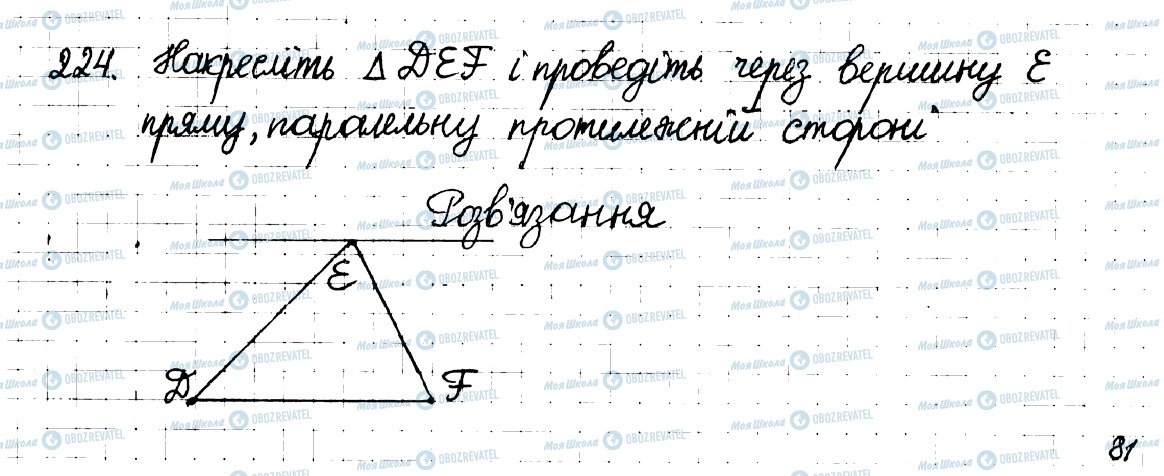 224. Накресліть △ DEF і проведіть через вершину E
пряму, паралельну протилежній стороні
Розв'язання
E
D F
81